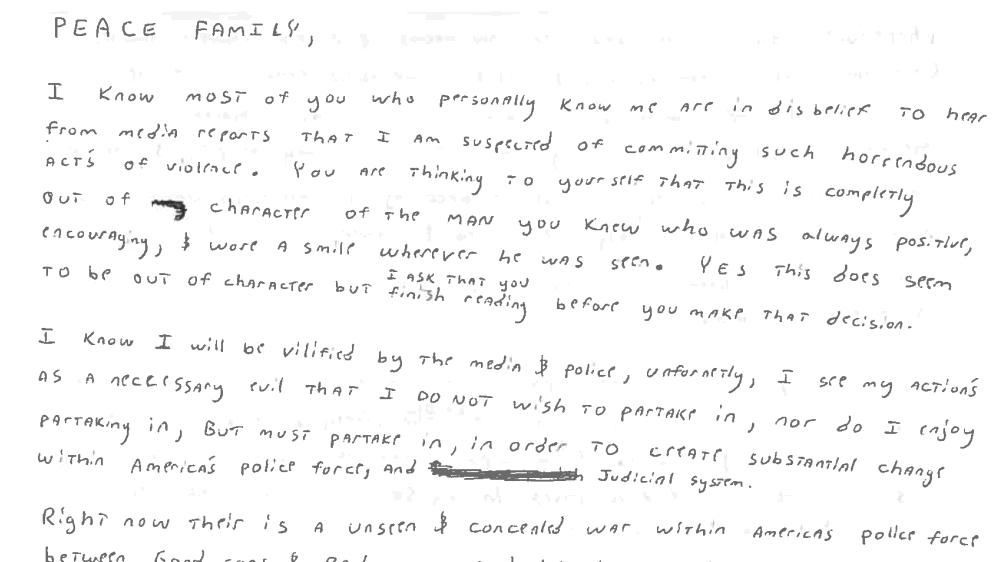 PEACE FAMILY,
I know most of you who personally know me are in disbelief to hear
from media reports that I am suspected of committing such horrendous
acts of violence. You are thinking to yourself that this is completly
out of character of the man you knew who was always positive,
encouraging, & wore a smile wherever he was seen. Yes this does seem
I ask that you
to be out of character but finish reading before you make that decision.
I know I will be vilified by the media & police, unfornetly, I see my action's
as a necessary evil that I do not wish to partake in, nor do I enjoy
partaking in, But must partake in, in order to create substantial change
within America's police force, and Judicial system.
Right now their is a unseen & concealed war within America's police force
between Good cops &